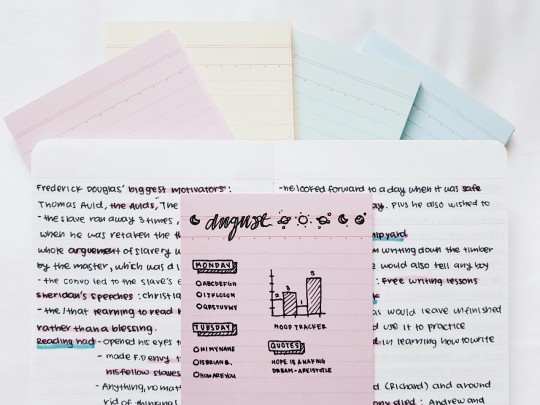 Frederick Douglas' biggest motivators:
Thomas Auld, the Aulds, The
- the slave ran away 3 times,
when he was retaken th
whole arguement of slavery w
by the master, which was d
- the convo led to the slave's e
sheridan's speeches: christia
- the /that learning to read
rather than a blessing.
Reading had - opened his eyes t
- made F.D envy
his fellow slaves
- Anything, no mat
rid of thinking
august
MONDAY
ABCDEFGH
IJKLMNO
PQRSTUVWXY
TUESDAY
HI MY NAME
IS BRIAN B.
HOW ARE YOU
2 3 1 5
MOOD TRACKER
QUOTES
HOPE IS A WAKING
DREAM - ARISTOTLE
- he looked forward to a day when it was safe
ay. Plus he also wished to
hipyard
m writing down the timber
would also tell any boy
: free writing lessons
as would leave unfinished
d use it to practice
d in learning how to write
(Richard) and around
ny died: Andrew and